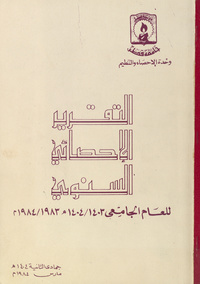 وحدة الإحصاء والتنظيم
التقرير
الإحصائي
السنوي
للعام الجامعي ١٤٠٣/١٤٠٤ھ ١٩٨٣/١٩٨٤م
جمادى الثانية ١٤٠٤ھ
مارس ١٩٨٤م